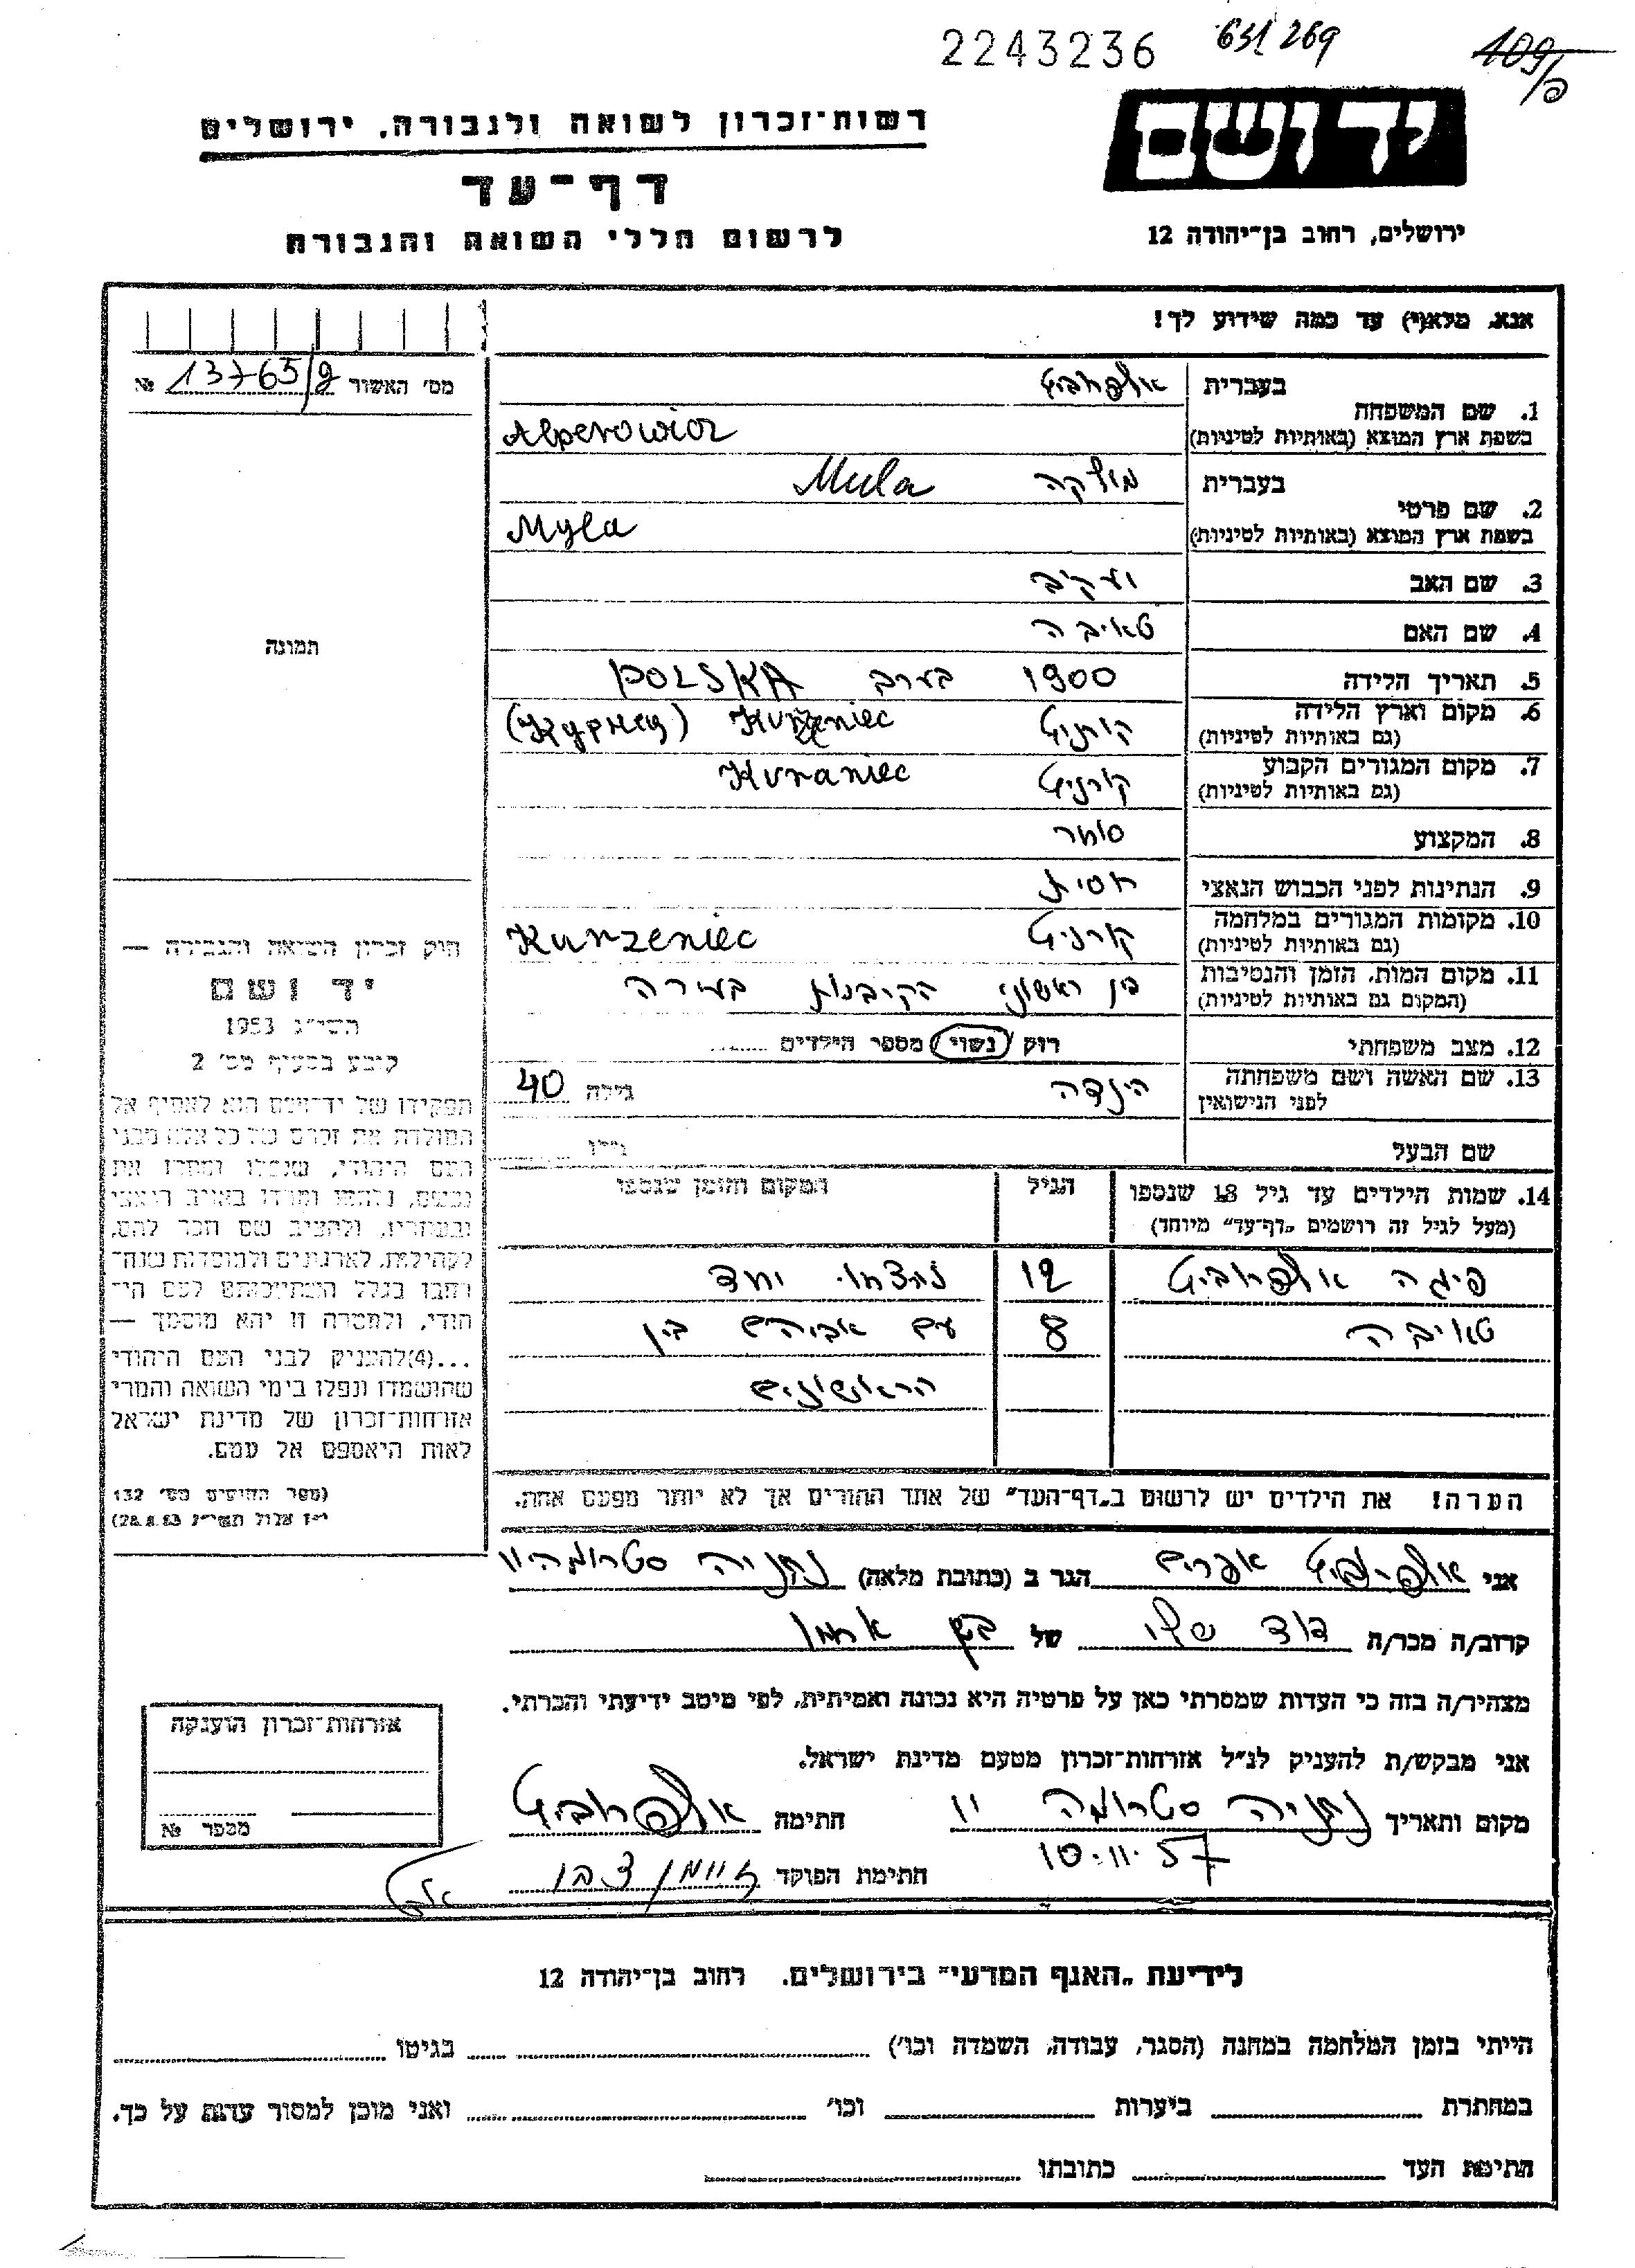 2243236
631/269
109/פ
רשות־זכרון לשואה ולגבורה, ירושלים
יד ושם
דף־עד
לרשום חללי השואה והגבורה
ירושלים, רחוב בן־יהודה 12
אנא, מלא(י) עד כמה שידוע לך!
מס׳ האשור № 13765/9
1. שם המשפחה
בעברית אלפרוביץ
בשפת ארץ המוצא (באותיות לטיניות) Alperowicz
2. שם פרטי
בעברית מולקה Mula
בשפת ארץ המוצא (באותיות לטיניות) Myla
3. שם האב יעקיב
4. שם האם טאיבה
5. תאריך הלידה 1900 בערב POLSKA
6. מקום וארץ הלידה
(גם באותיות לטיניות) קורניץ Kurzeniec
7. מקום המגורים הקבוע
(גם באותיות לטיניות) קורניץ Kuraniec
8. המקצוע סוחר
9. הנתינות לפני הכבוש הנאצי רוסית
10. מקומות המגורים במלחמה
(גם באותיות לטיניות) קורניץ Kurzeniec
11. מקום המות, הזמן והנסיבות
(המקום גם באותיות לטיניות) בין ראשוני הקרבנות בעירה
12. מצב משפחתי רווק / נשוי / מספר הילדים
13. שם האשה ושם משפחתה
לפני הנישואין הינדה גילה 40
שם הבעל גילו
14. שמות הילדים עד גיל 18 שנספו
(מעל לגיל זה רושמים „דף־עד״ מיוחד)
הגיל
המקום והזמן שנספו
פיגה אלפרוביץ 12 נרצחו יחד
טאיבה 8 עם אביהם בין
הראשונים
הערה! את הילדים יש לרשום ב„דף־העד״ של אחד ההורים אך לא יותר מפעם אחת.
תמונה
חוק זכרון השואה והגבורה —
יד ושם
תשי״ג 1953
קובע בסעיף מס׳ 2
תפקידו של יד־ושם הוא לאסוף אל
המולדת את זכרם של כל אלה מבני
העם היהודי, שנפלו ומסרו את
נפשם, נלחמו ומרדו באויב הנאצי
ובעוזריו, ולהציב שם וזכר להם,
לקהילות, לארגונים ולמוסדות שנח־
רבו בגלל השתייכותם לעם היהו־
הודי, ולמטרה זו יהא מוסמך —
...(4)להעניק לבני העם היהודי
שהושמדו ונפלו בימי השואה והמרי
אזרחות־זכרון של מדינת ישראל
לאות היאספם אל עמם.
(ספר החוקים מס׳ 132
י״ז אלול תשי״ג 28.8.53)
אני אלפרוביץ אפרים הגר ב (כתובת מלאה) נתניה סטרומה 11
קרוב/ה מכר/ה דוד שלי של
מצהיר/ה בזה כי העדות שמסרתי כאן על פרטיה היא נכונה ואמיתית, לפי מיטב ידיעתי והכרתי.
אני מבקש/ת להעניק לנ״ל אזרחות־זכרון מטעם מדינת ישראל.
מקום ותאריך נתניה סטרומה 11 חתימה אלפרוביץ
10.11.57 חתימת הפוקד
אזרחות־זכרון הוענקה
מספר №
לידיעת „האגף המדעי״ בירושלים, רחוב בן־יהודה 12
הייתי בזמן המלחמה במחנה (הסגר, עבודה, השמדה וכו׳) בגיטו
במחתרת ביערות וכו׳ ואני מוכן למסור עדות על כך.
חתימת העד כתובתו